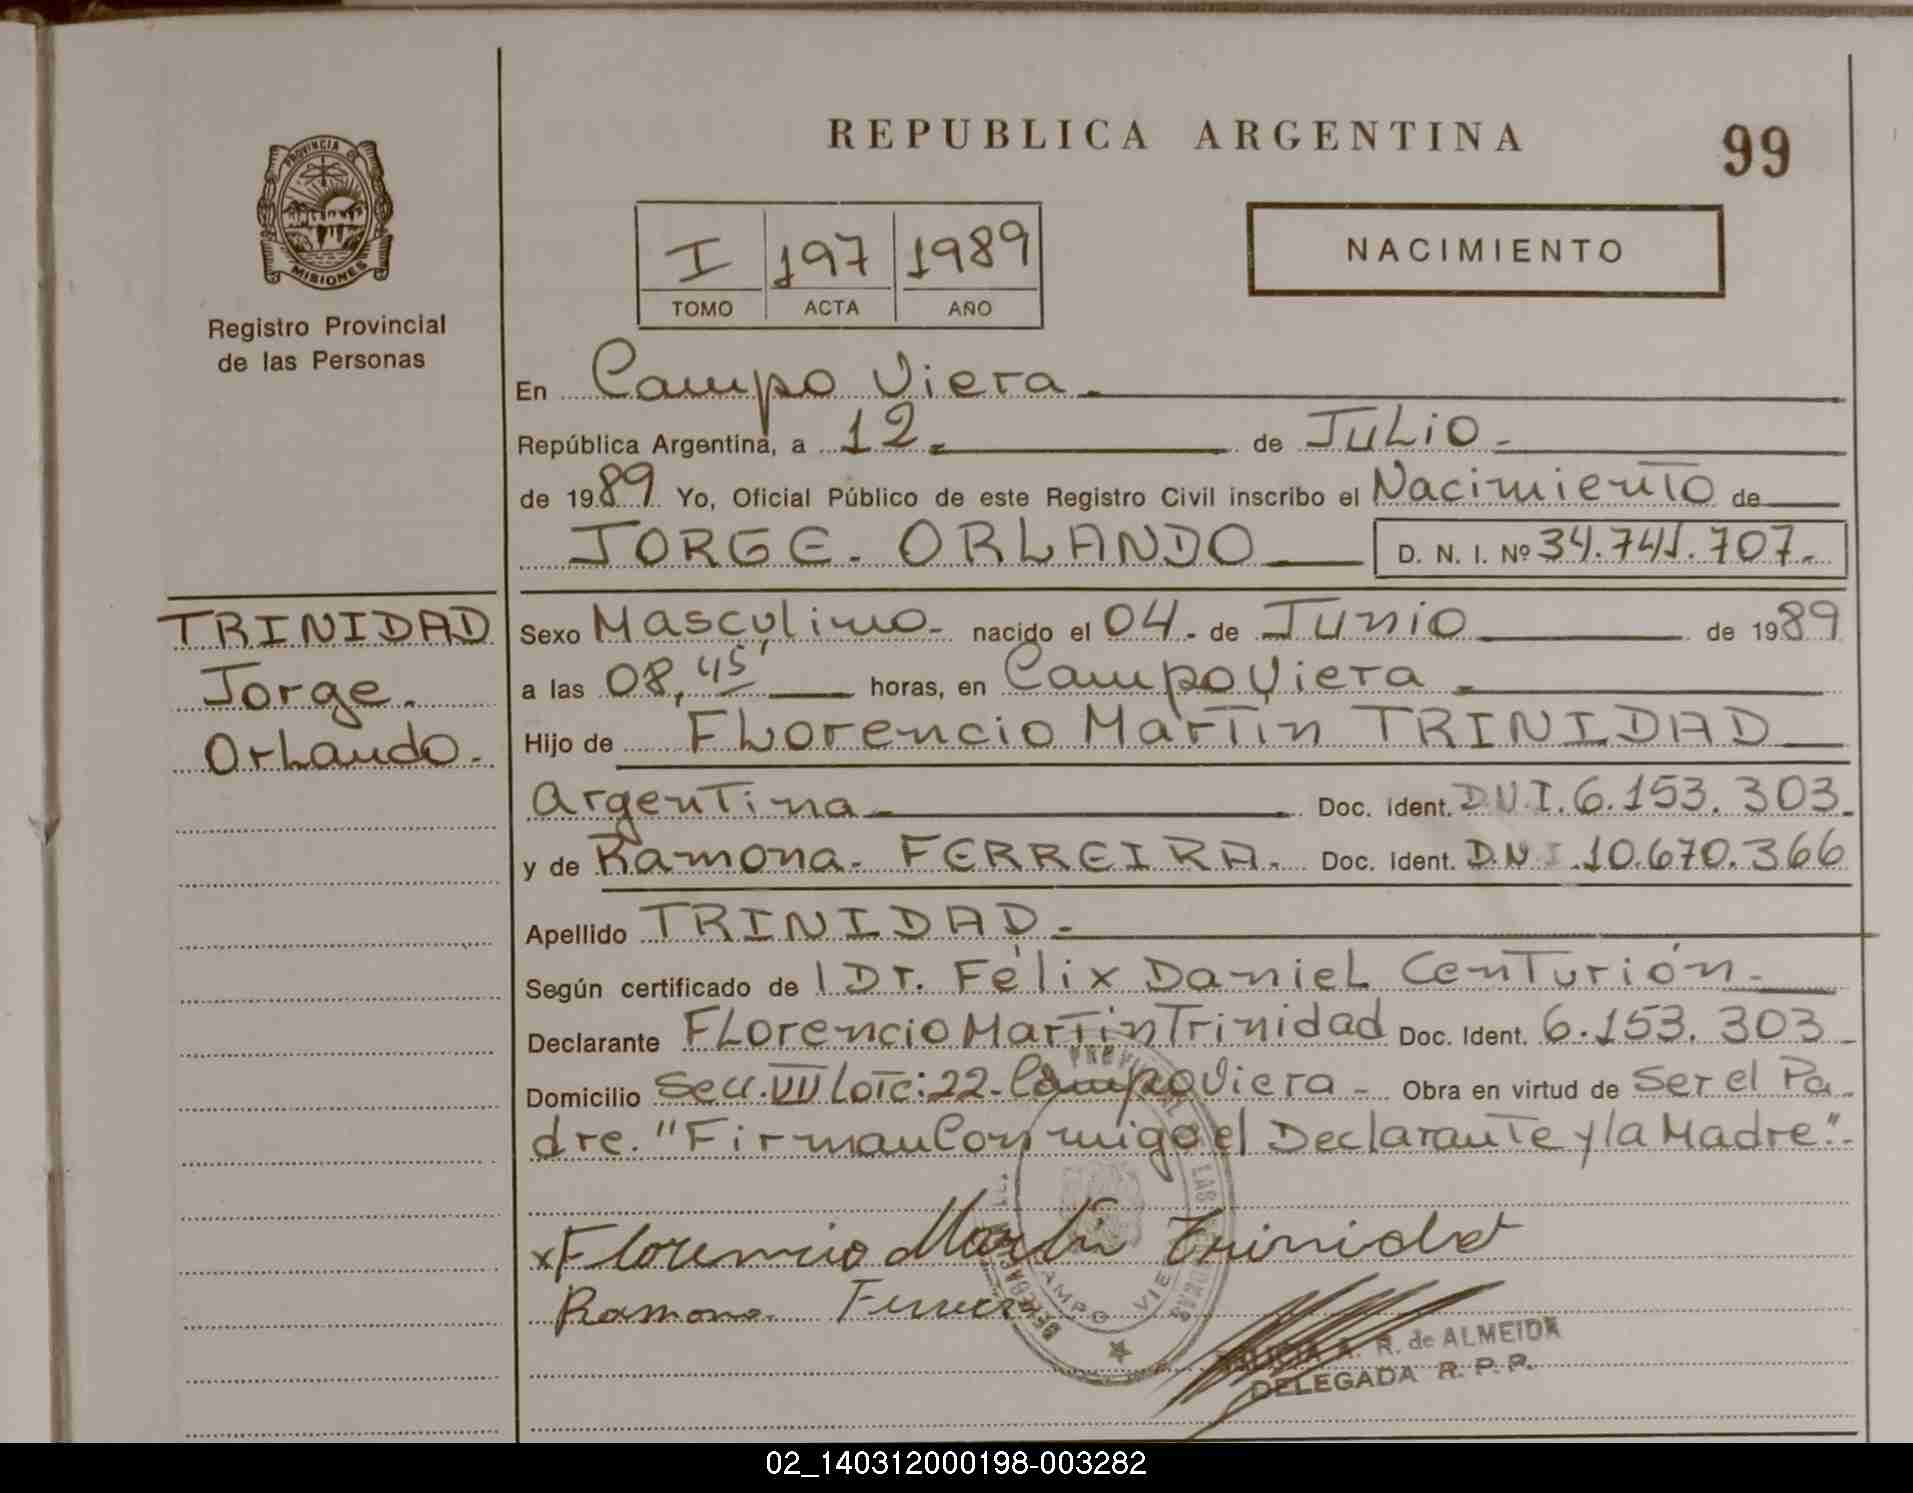 REPUBLICA ARGENTINA
99
PROVINCIA DE
MISIONES
Registro Provincial
de las Personas
I 197 1989
TOMO ACTA AÑO
NACIMIENTO
En Campo Viera.
República Argentina, a 12. de Julio.
de 1989 Yo, Oficial Público de este Registro Civil inscribo el Nacimiento de
JORGE. ORLANDO D. N. I. Nº 34.741.707.
TRINIDAD
Jorge.
Orlando.
Sexo Masculino. nacido el 04. de Junio de 1989
a las 08,45' horas, en Campo Viera.
Hijo de Florencio Martin TRINIDAD
Argentina Doc. ident. D.N.I. 6.153.303.
y de Ramona. FERREIRA. Doc. ident. D.N.I. 10.670.366
Apellido TRINIDAD.
Según certificado de l Dr. Félix Daniel Centurión.
Declarante Florencio Martin Trinidad Doc. Ident. 6.153.303
Domicilio Secc. VII Lote: 22. Campo Viera. Obra en virtud de Ser el Pa
dre. "Firman Conmigo el Declarante y la Madre".
x Florencio Martin Trinidad
Ramona Ferreira
CAMPO VIERA
R. de ALMEIDA
DELEGADA R. P. P.
02_140312000198-003282